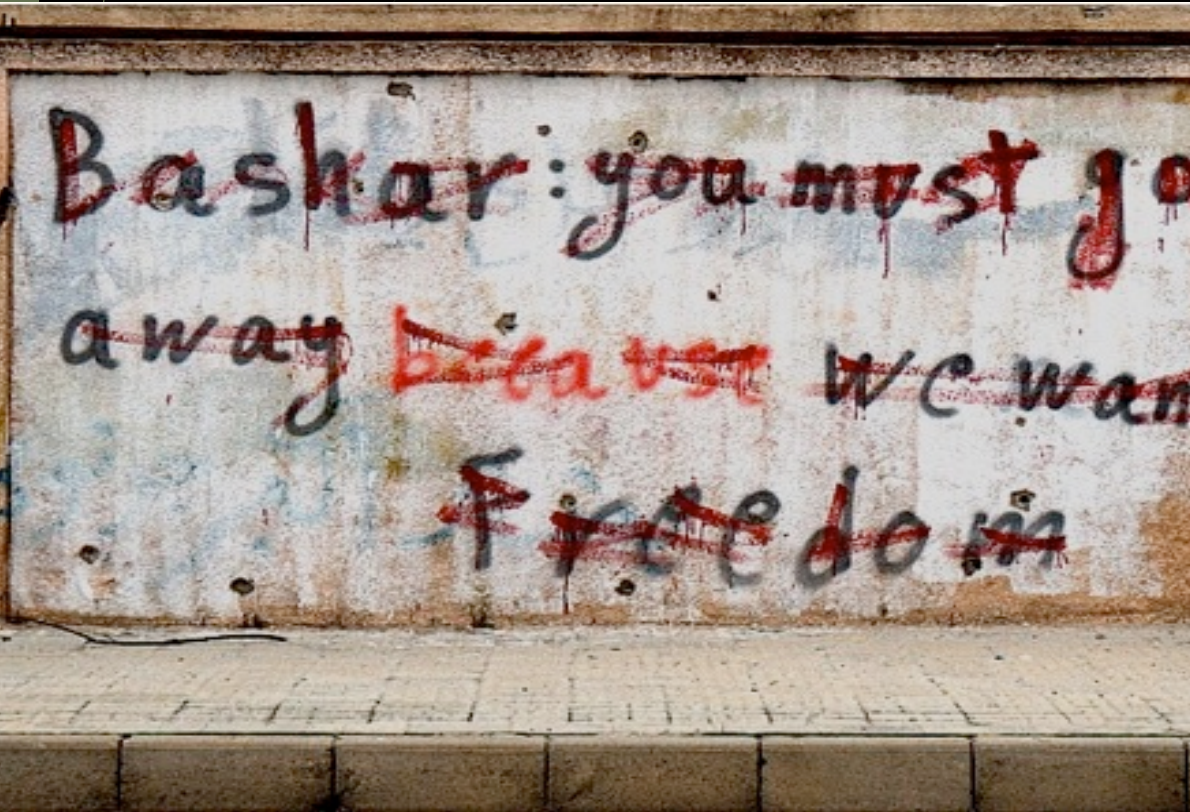 Bashar: you must go
away because we wan
Freedom